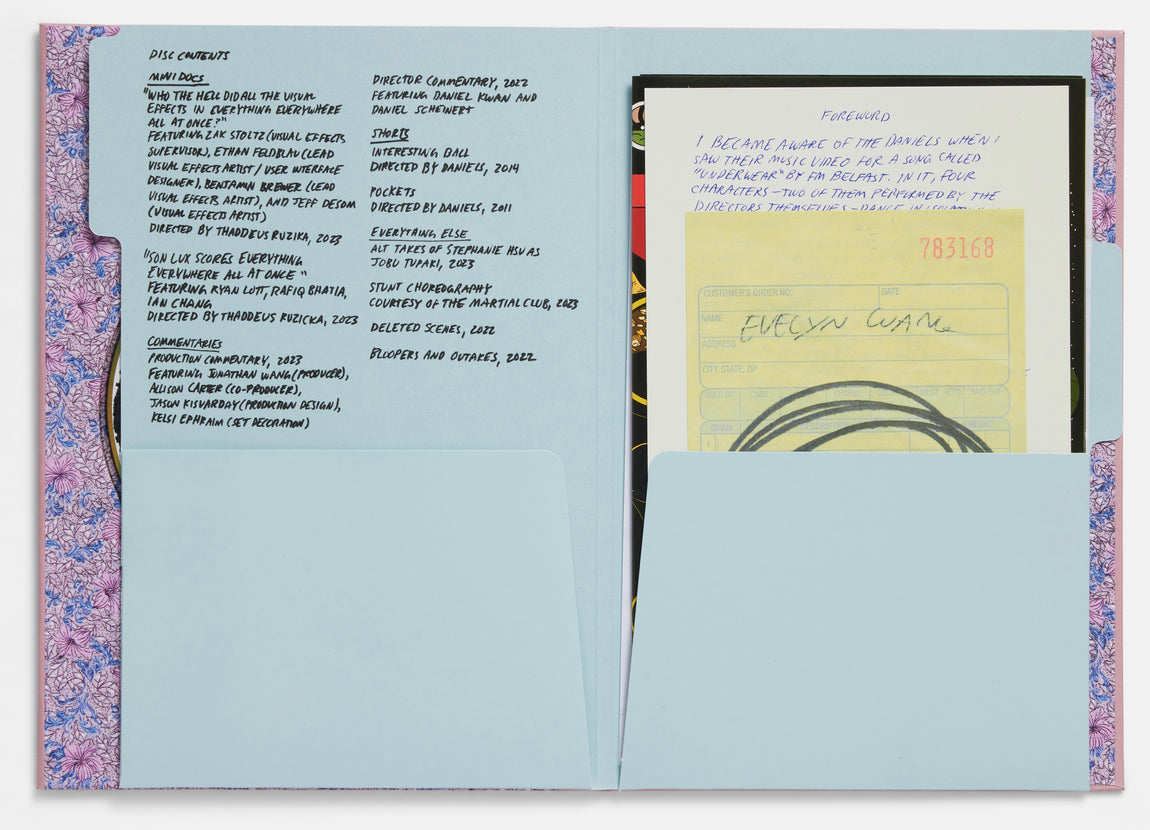 DISC CONTENTS
MINI DOCS
"WHO THE HELL DID ALL THE VISUAL
EFFECTS IN EVERYTHING EVERYWHERE
ALL AT ONCE?"
FEATURING ZAK STOLTZ (VISUAL EFFECTS
SUPERVISOR), ETHAN FELDBAU (LEAD
VISUAL EFFECTS ARTIST / USER INTERFACE
DESIGNER), BENJAMIN BREWER (LEAD
VISUAL EFFECTS ARTIST), AND JEFF DESOM
(VISUAL EFFECTS ARTIST)
DIRECTED BY THADDEUS RUZIKA, 2023
"SON LUX SCORES EVERYTHING
EVERYWHERE ALL AT ONCE"
FEATURING RYAN LOTT, RAFIQ BHATIA,
IAN CHANG
DIRECTED BY THADDEUS RUZICKA, 2023
COMMENTARIES
PRODUCTION COMMENTARY, 2023
FEATURING JONATHAN WANG (PRODUCER),
ALLISON CARTER (CO-PRODUCER),
JASON KISVARDAY (PRODUCTION DESIGN),
KELSI EPHRAIM (SET DECORATION)
DIRECTOR COMMENTARY, 2022
FEATURING DANIEL KWAN AND
DANIEL SCHEINERT
SHORTS
INTERESTING BALL
DIRECTED BY DANIELS, 2014
POCKETS
DIRECTED BY DANIELS, 2011
EVERYTHING ELSE
ALT TAKES OF STEPHANIE HSU AS
JOBU TUPAKI, 2023
STUNT CHOREOGRAPHY
COURTESY OF THE MARTIAL CLUB, 2023
DELETED SCENES, 2022
BLOOPERS AND OUTAKES, 2022
FOREWORD
I BECAME AWARE OF THE DANIELS WHEN I
SAW THEIR MUSIC VIDEO FOR A SONG CALLED
"UNDERWEAR" BY FM BELFAST. IN IT, FOUR
CHARACTERS—TWO OF THEM PERFORMED BY THE
DIRECTORS THEMSELVES—DANCE IN
783168
CUSTOMER'S ORDER NO. DATE
NAME EVELYN WANG
ADDRESS
CITY, STATE, ZIP
SOLD BY CASH CHARGE PAID OUT
QUAN. DESCRIPTION AMOUNT
1